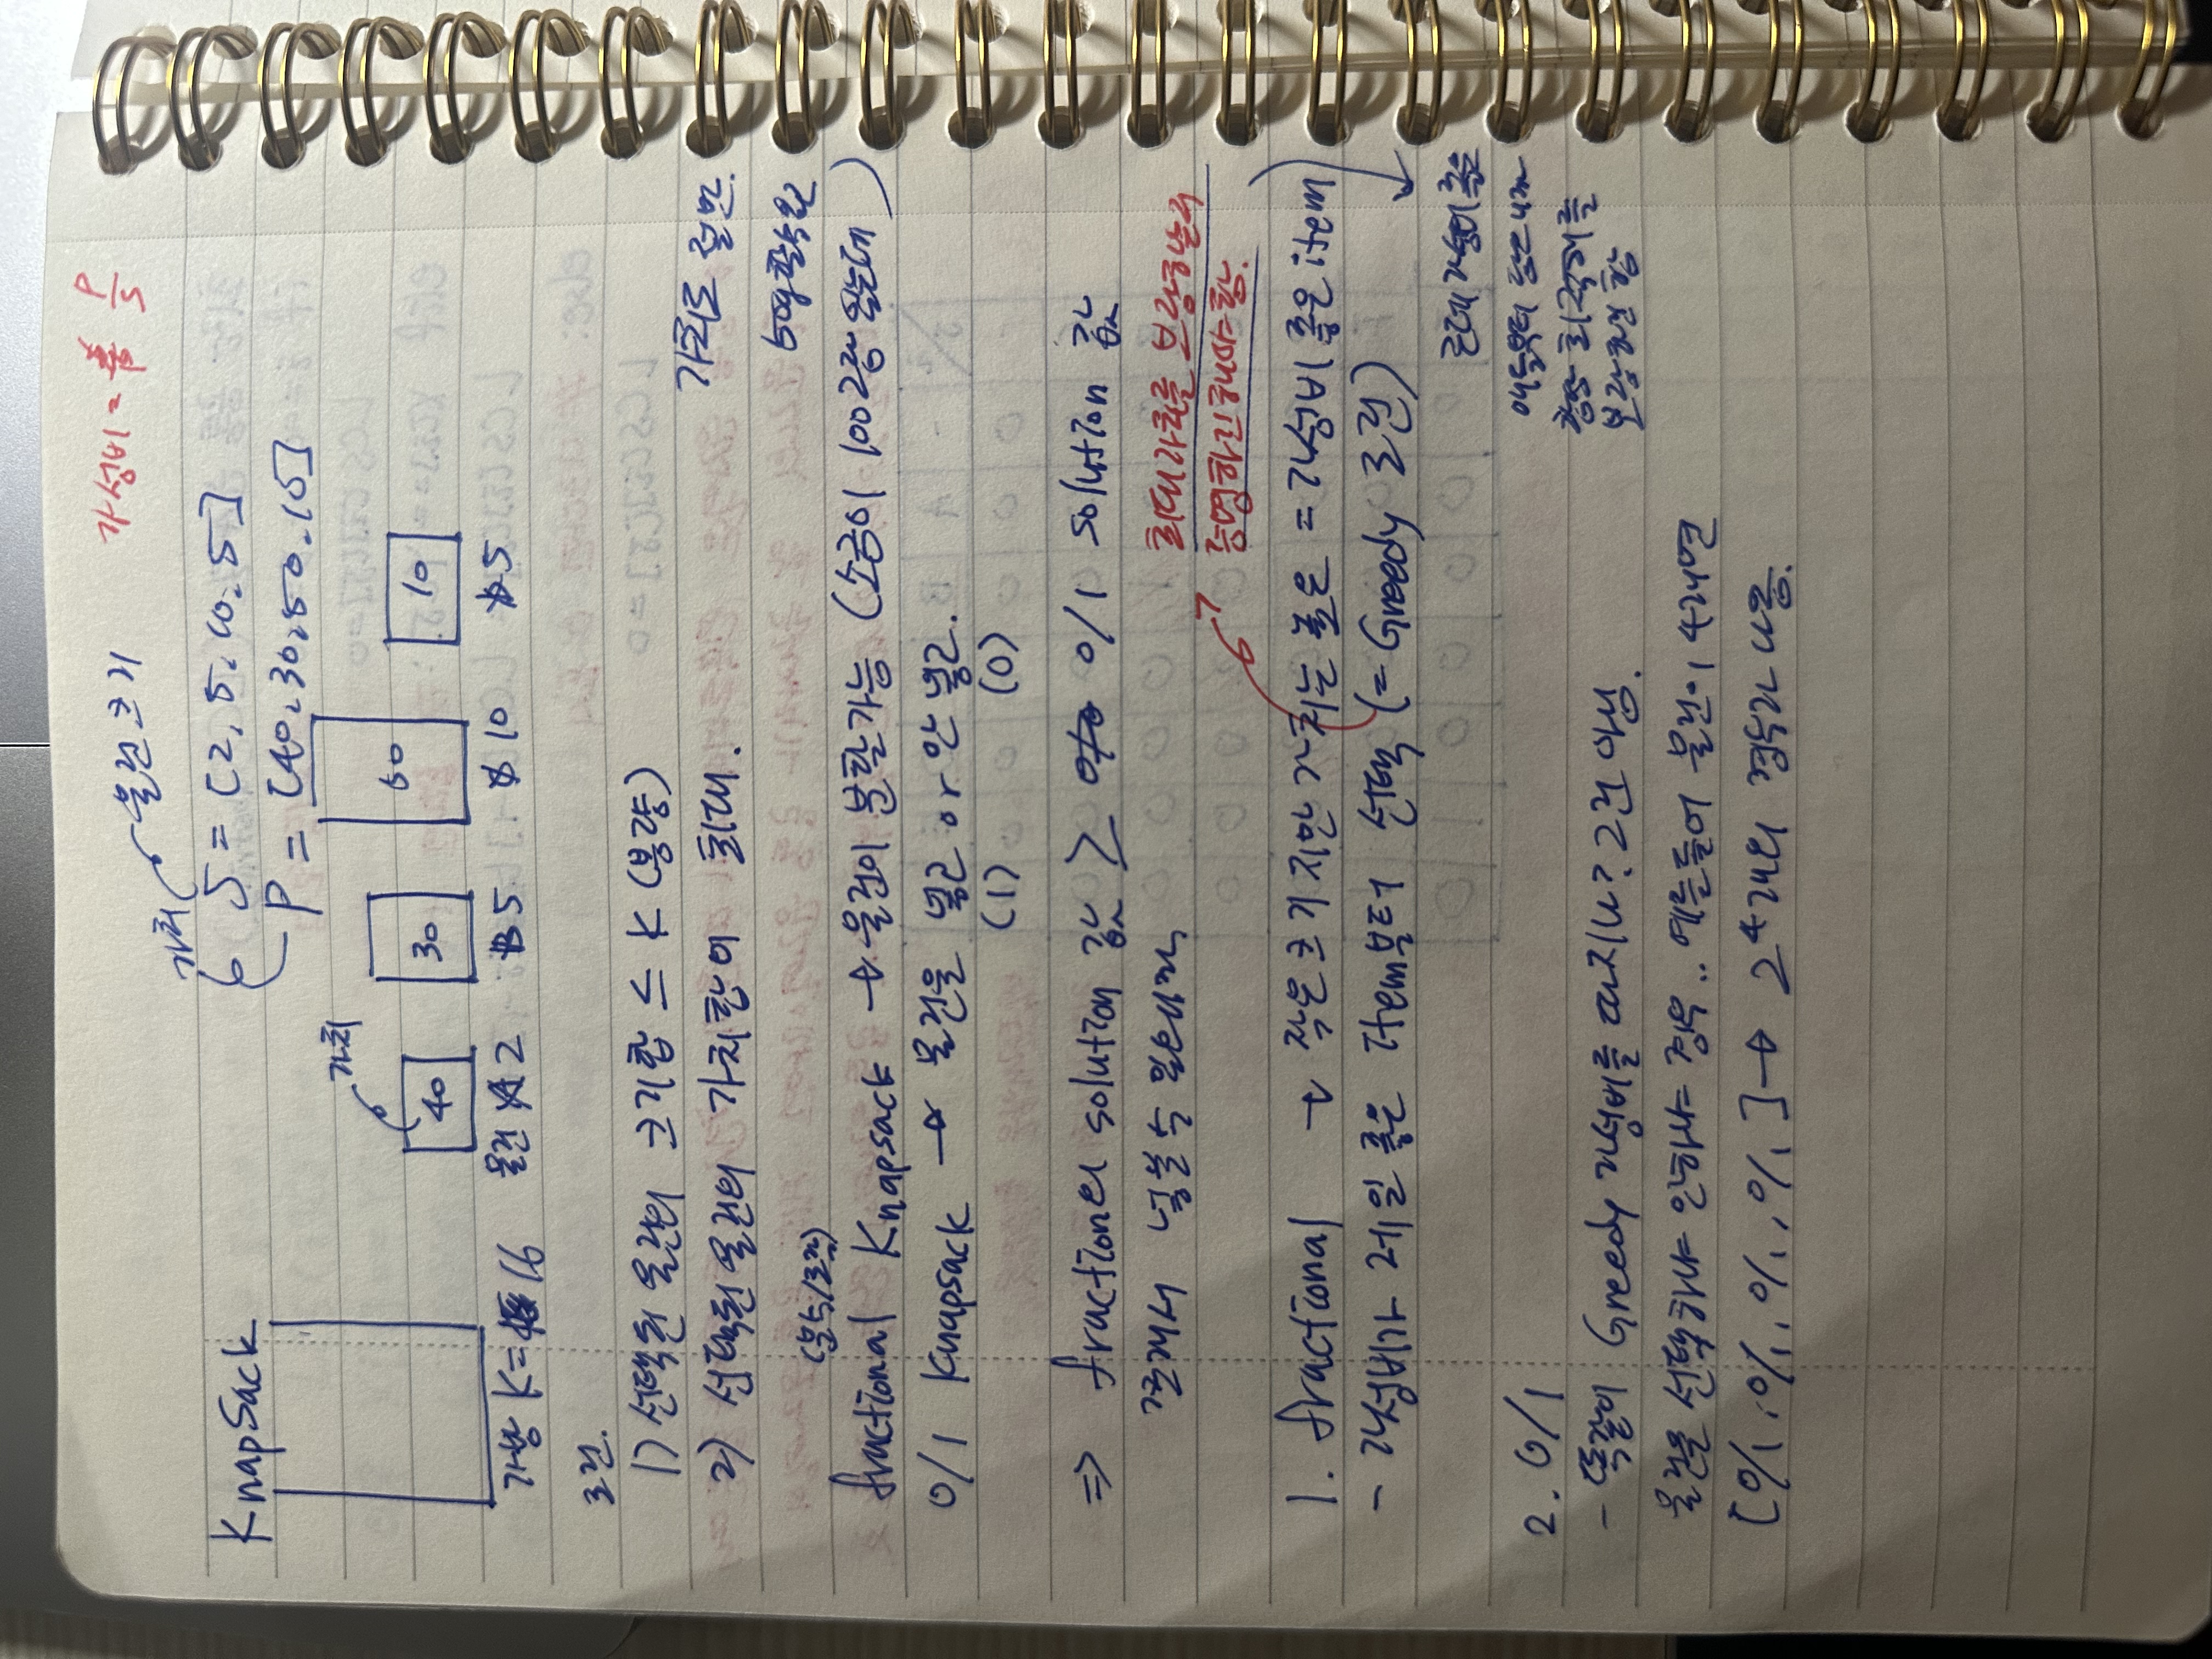 가성비 = P/S
물건크기
가치
KnapSack
S = [2, 5, 10, 5]
P = [40, 30, 50, 10]
가치
40 30 50 10
가방 K = 16 물건 2 5 10 5
조건.
1) 선택된 물건의 크기합 ≤ K (용량)
2) 선택된 물건의 가치합이 최대.
가치도 절반.
50g 팔수있고
(분수/조각)
fractional Knapsack → 물건이 분할가능 (소금이 100g 있는데)
0/1 Knapsack → 물건을 넣고 or 안 넣고.
(1) (0)
⇒ fractional solution 값 ≥ 0/1 solution 값
쪼개서 넣을 수 있으니까
최대가치를 보장하는지
증명하긴해야함.
1. fractional → 작은크기지만 가치는 높은 = 가성비 좋은 item
- 가성비가 제일 좋은 Item부터 선택 (= Greedy 조건)
근데 가성비 좋은
애들부터 담으니까
항상 최적해를
보장하긴 함
2. 0/1
- 똑같이 Greedy 가성비를 따지나? 그건 아님.
물건을 선택하냐 안하냐 경우.. 예를들어 물건이 4개면
[0/1, 0/1, 0/1, 0/1] → 2⁴개의 경우가 나옴.